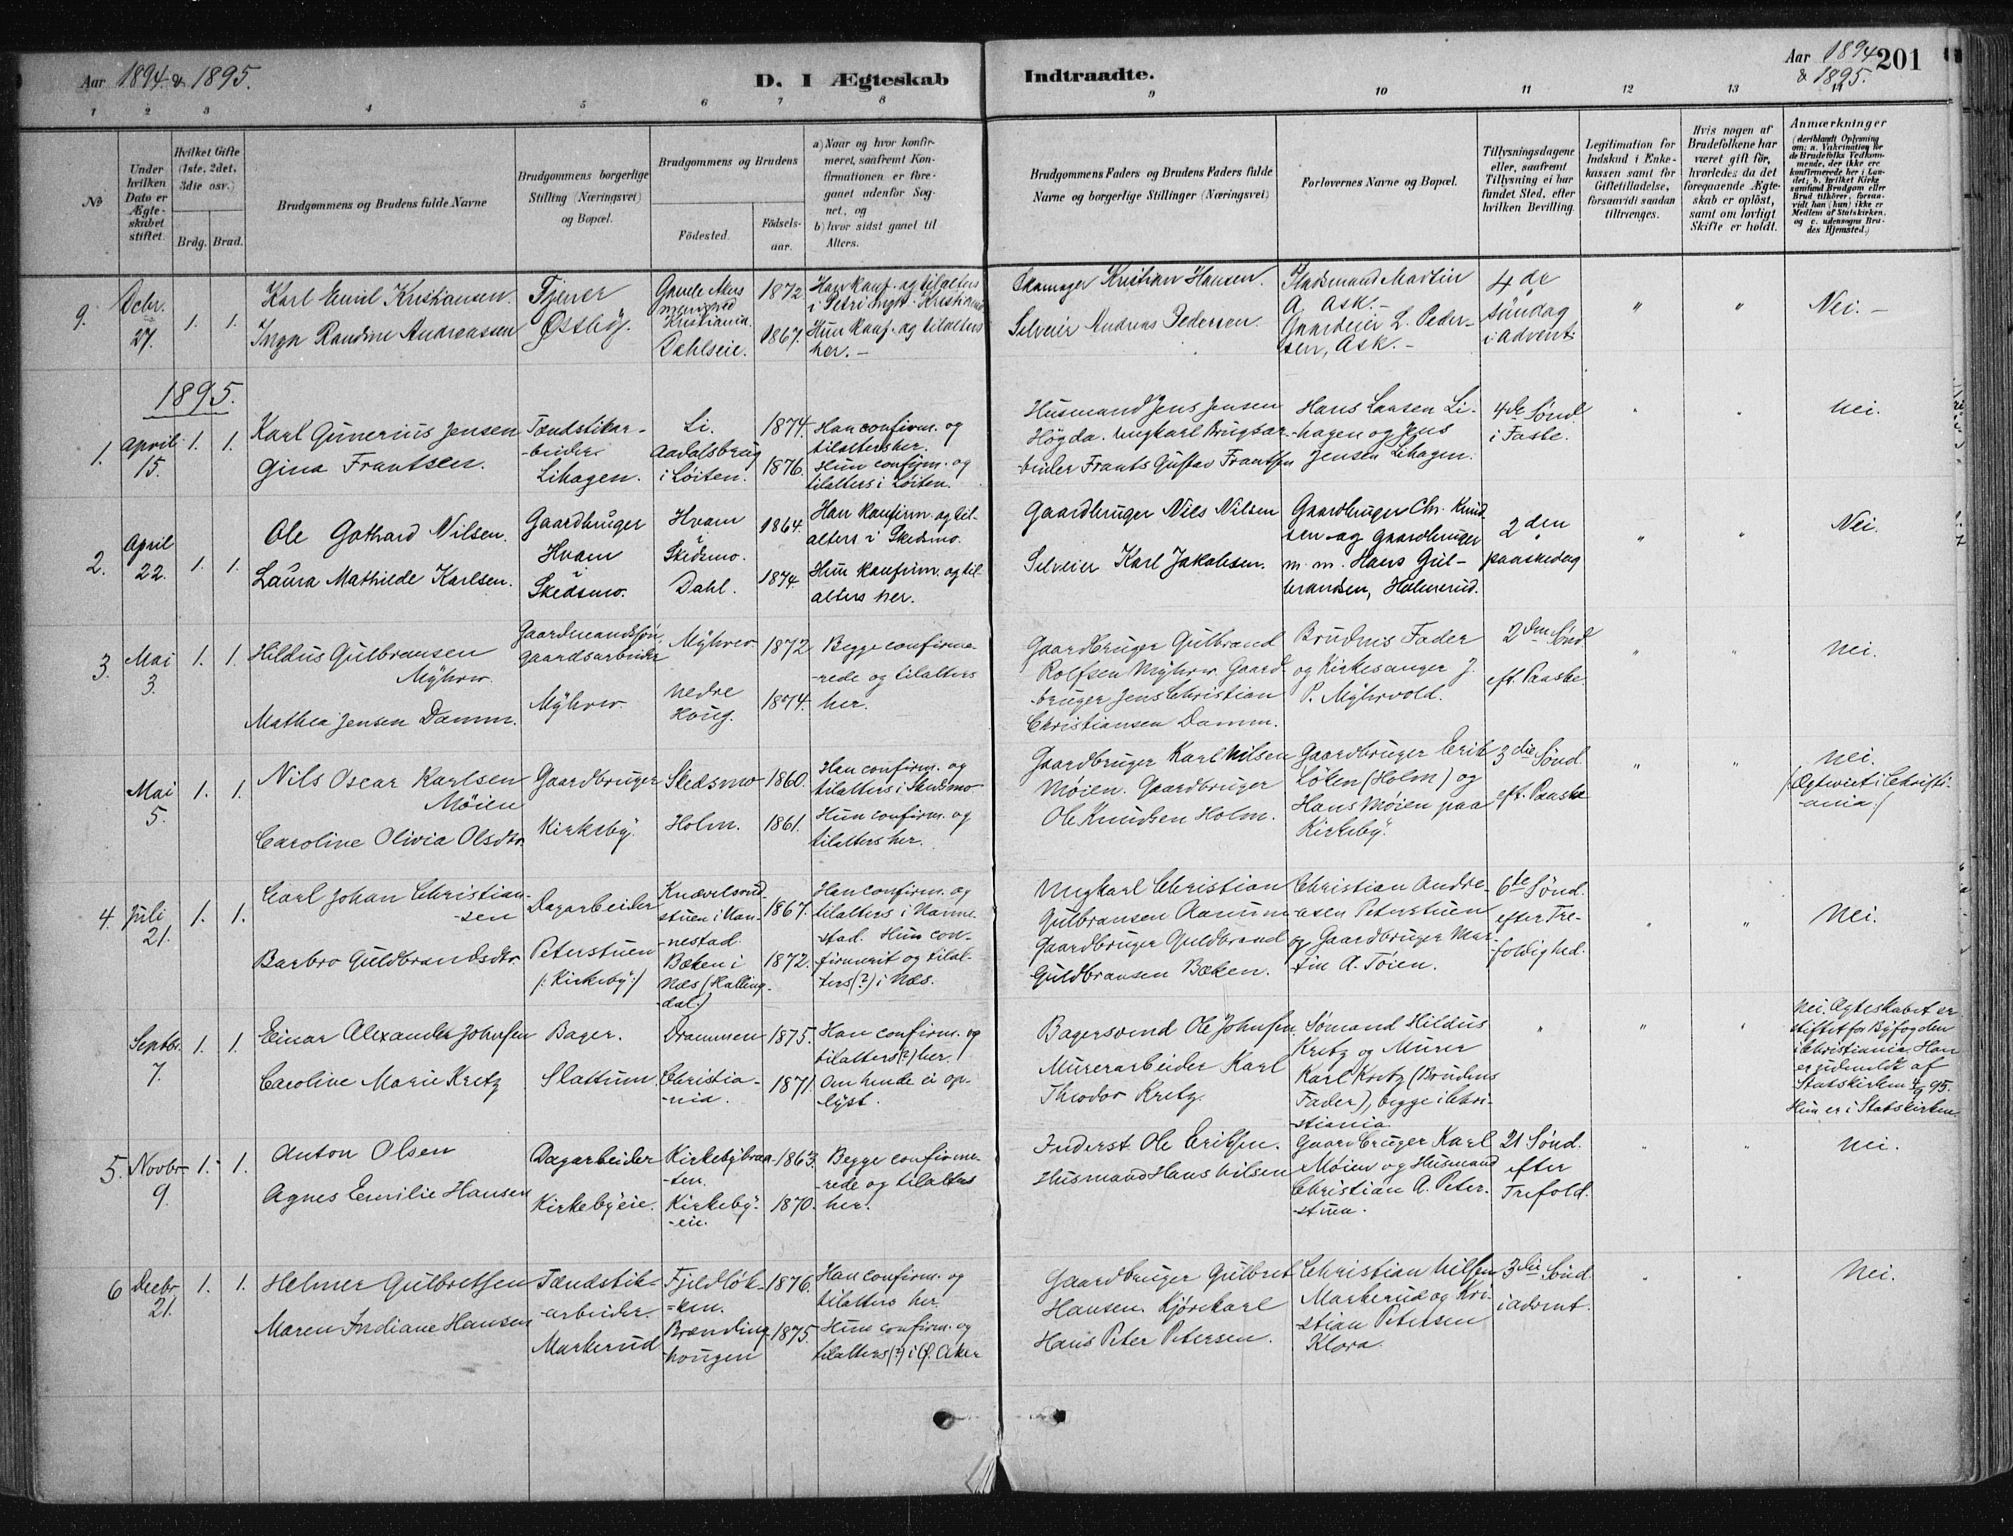 Aar 1894 & 1895.
D. I Ægteskab
Indtraadte.
Aar 1894 & 1895.
201
1 2 3 4 5 6 7 8 9 10 11 12 13 14
No
Under hvilken Dato er Ægteskabet stiftet.
Hvilket Gifte (1ste, 2det, 3die osv.)
Brdg. Brud.
Brudgommens og Brudens fulde Navne
Brudgommens borgerlige Stilling (Næringsvei) og Bopæl.
Brudgommens og Brudens
Fødested.
Fødselsaar.
a) Naar og hvor konfirmeret, saafremt Konfirmationen er foreganet udenfor Sognet, og
b) hvor sidst ganet til Alters.
Brudgommens Faders og Brudens Faders fulde Navne og borgerlige Stillinger (Næringsvei)
Forlovernes Navne og Bopæl.
Tillysningsdagene eller, saafremt Tillysning ei har fundet Sted, efter hvilken Bevilling.
Legitimation for Indskud i Enkekassen samt for Giftetilladelse, forsaavidt saadan tiltrænges.
Hvis nogen af Brudefolkene har været gift før, hvorledes da det foregaaende Ægteskab er opløst, samt om lovligt Skifte er holdt.
Anmærkninger
(deriblandt Oplysning om: a. Vakcination for de Brudefolks Vedkommende, der ikke ere konfirmerede her i Landet; b. hvilket Kirkesamfund Brudgom eller Brud tilhører, forsaavidt han (hun) ikke er Medlem af Statskirken, og c. udensogns Brudes Hjemsted.)
9. Decbr. 27. 1. 1.
Karl Emil Kristiansen.
Inga Randine Andreassen
Tjener
Østbÿ.
Gamle Akers menighed Kristiania.
Dahlseie.
1872
1867.
Han konf. og tilalters i Petri mgh. Kristiania
Hun konf. og tilalters her. –
Skomager Kristian Hansen.
Selveier Andreas Pedersen.
Stadsmand Martin A. Ask. –
Gaardeier L. Pedersen, Ask. –
4de søndag i advent.
" "
Nei. –
1895.
1. April 15. 1. 1.
Karl Gunerius Jensen
Gina Frantsen.
Tændstikarbeider.
Lihagen.
Li.
Aadalsbrug i Løiten.
1874.
1876.
Han confirm. og tilalters her.
Hun confirm. og tilalters i Løiten.
Husmand Jens Jensen
Høgda. Ungkarl Brugsarbeider Frants Gustav Frantsen
Hans Larsen Lihagen og Jens Jensen Lihagen.
4de Sønd. i Faste.
" "
Nei.
2. April 22. 1. 1.
Ole Gothard Nilsen.
Laura Mathilde Karlsen.
Gaardbruger
Hvam i Skedsmo.
Hvam i Skedsmo.
Dahl.
1864
1874.
Han konfirm. og tilalters i Skedsmo.
Hun konfirm. og tilalters her.
Gaardbruger Niels Nilsen
Selveier Karl Jakobsen.
Gaardbruger Chr. Knudsen og Gaardbruger m. m. Hans Gulbrandsen, Holmerud.
2den paaskedag
" "
Nei.
3. Mai 3. 1. 1.
Hildus Gulbransen Mÿhrer.
Mathea Jensen Damm.
Gaardmandssøn, gaardsarbeider
Mÿhrer.
Mÿhrer
nedre Houg.
1872
1874.
Begge confirmerede og tilalters her.
Gaardbruger Gulbrand Rolfsen Mÿhrer. Gaardbruger Jens Christian Christiansen Damm.
Brudens Fader og Kirkesanger J. P. Mÿhrvold.
2den Sønd. eft. Paaske
" "
Nei.
Mai 5. 1. 1.
Nils Oscar Karlsen Møien
Caroline Olivia Olsdtr.
Gaardbruger
Kirkebÿ.
Skedsmo
Holm.
1860.
1861.
Han confirm. og tilalters i Skedsmo
Hun confirm. og tilalters her.
Gaardbruger Karl Nilsen Møien. Gaardbruger Ole Knudsen Holm.
Gaardbruger Erik Løken (Holm) og Hans Møien paa Kirkebÿ.
3die Sønd. eft. Paaske
" "
Nei.
(Ægtviet i Christiania.)
4. Juli 21. 1. 1.
Carl Johan Christiansen
Barbro Guldbrandsdtr.
Dagarbeider
Peterstuen
(: Kirkebÿ:)
Knævelsrudstuen i Nannestad.
Bæken i Næs (Hallingdal.)
1867.
1872.
Han confirm. og tilalters i Nannestad. Hun confirmerit og tilalters (?) i Næs.
Ungkarl Christian Gulbransen Aamum
Gaardbruger Guldbrand Guldbransen Bæken.
Christian Andreasen Peterstuen og Gaardbruger Martin A. Tøien.
6te Sønd. efter Trefoldighed.
" "
Nei.
Septbr. 7. 1. 1.
Einar Alexander Johnsen
Caroline Marie Kretz
Bager.
Slattum.
Drammen
Christiania.
1875.
1871.
Han confirm. og tilalters (?) her.
Om hende ei oplÿst.
Bagersvend Ole Johnsen.
Murerarbeider Karl Theodor Kretz.
Sømand Hildus Kretz og Murer Karl Kretz (Brudens Fader), begge i Christiania.
" " "
Nei. Ægteskabet er stiftet for Bÿfogden i Christiania. Han er udmeldt af Statskirken 4/9 95. Hun er i Statskirken
5. Novbr. 9. 1. 1.
Anton Olsen
Agnes Emilie Hansen
Dagarbeider
Kirkebÿeie.
Kirkebÿbraaten.
Kirkebÿeie.
1863.
1870.
Begge confirmerede og tilalters her.
Inderst Ole Eriksen.
Husmand Hans Nilsen
Gaardbruger Karl Møien og Husmand Christian A. Peterstuen.
21 Sønd. efter Trefold.
" "
Nei.
6 Decbr. 21. 1. 1.
Helmer Gulbretsen
Maren Indiane Hansen
Tændstikarbeider.
Markerud
Fjeldløkken.
Brændinghougen
1876.
1875.
Han confirm. og tilalters her.
Hun confirm. og tilalters (?) i Ø. Aker
Gaardbruger Gulbret Hansen. Kjørekarl Hans Peter Petersen.
Christian Nilsen Markerud og Kristian Petersen Klora.
3die Sønd. i advent.
" "
Nei.